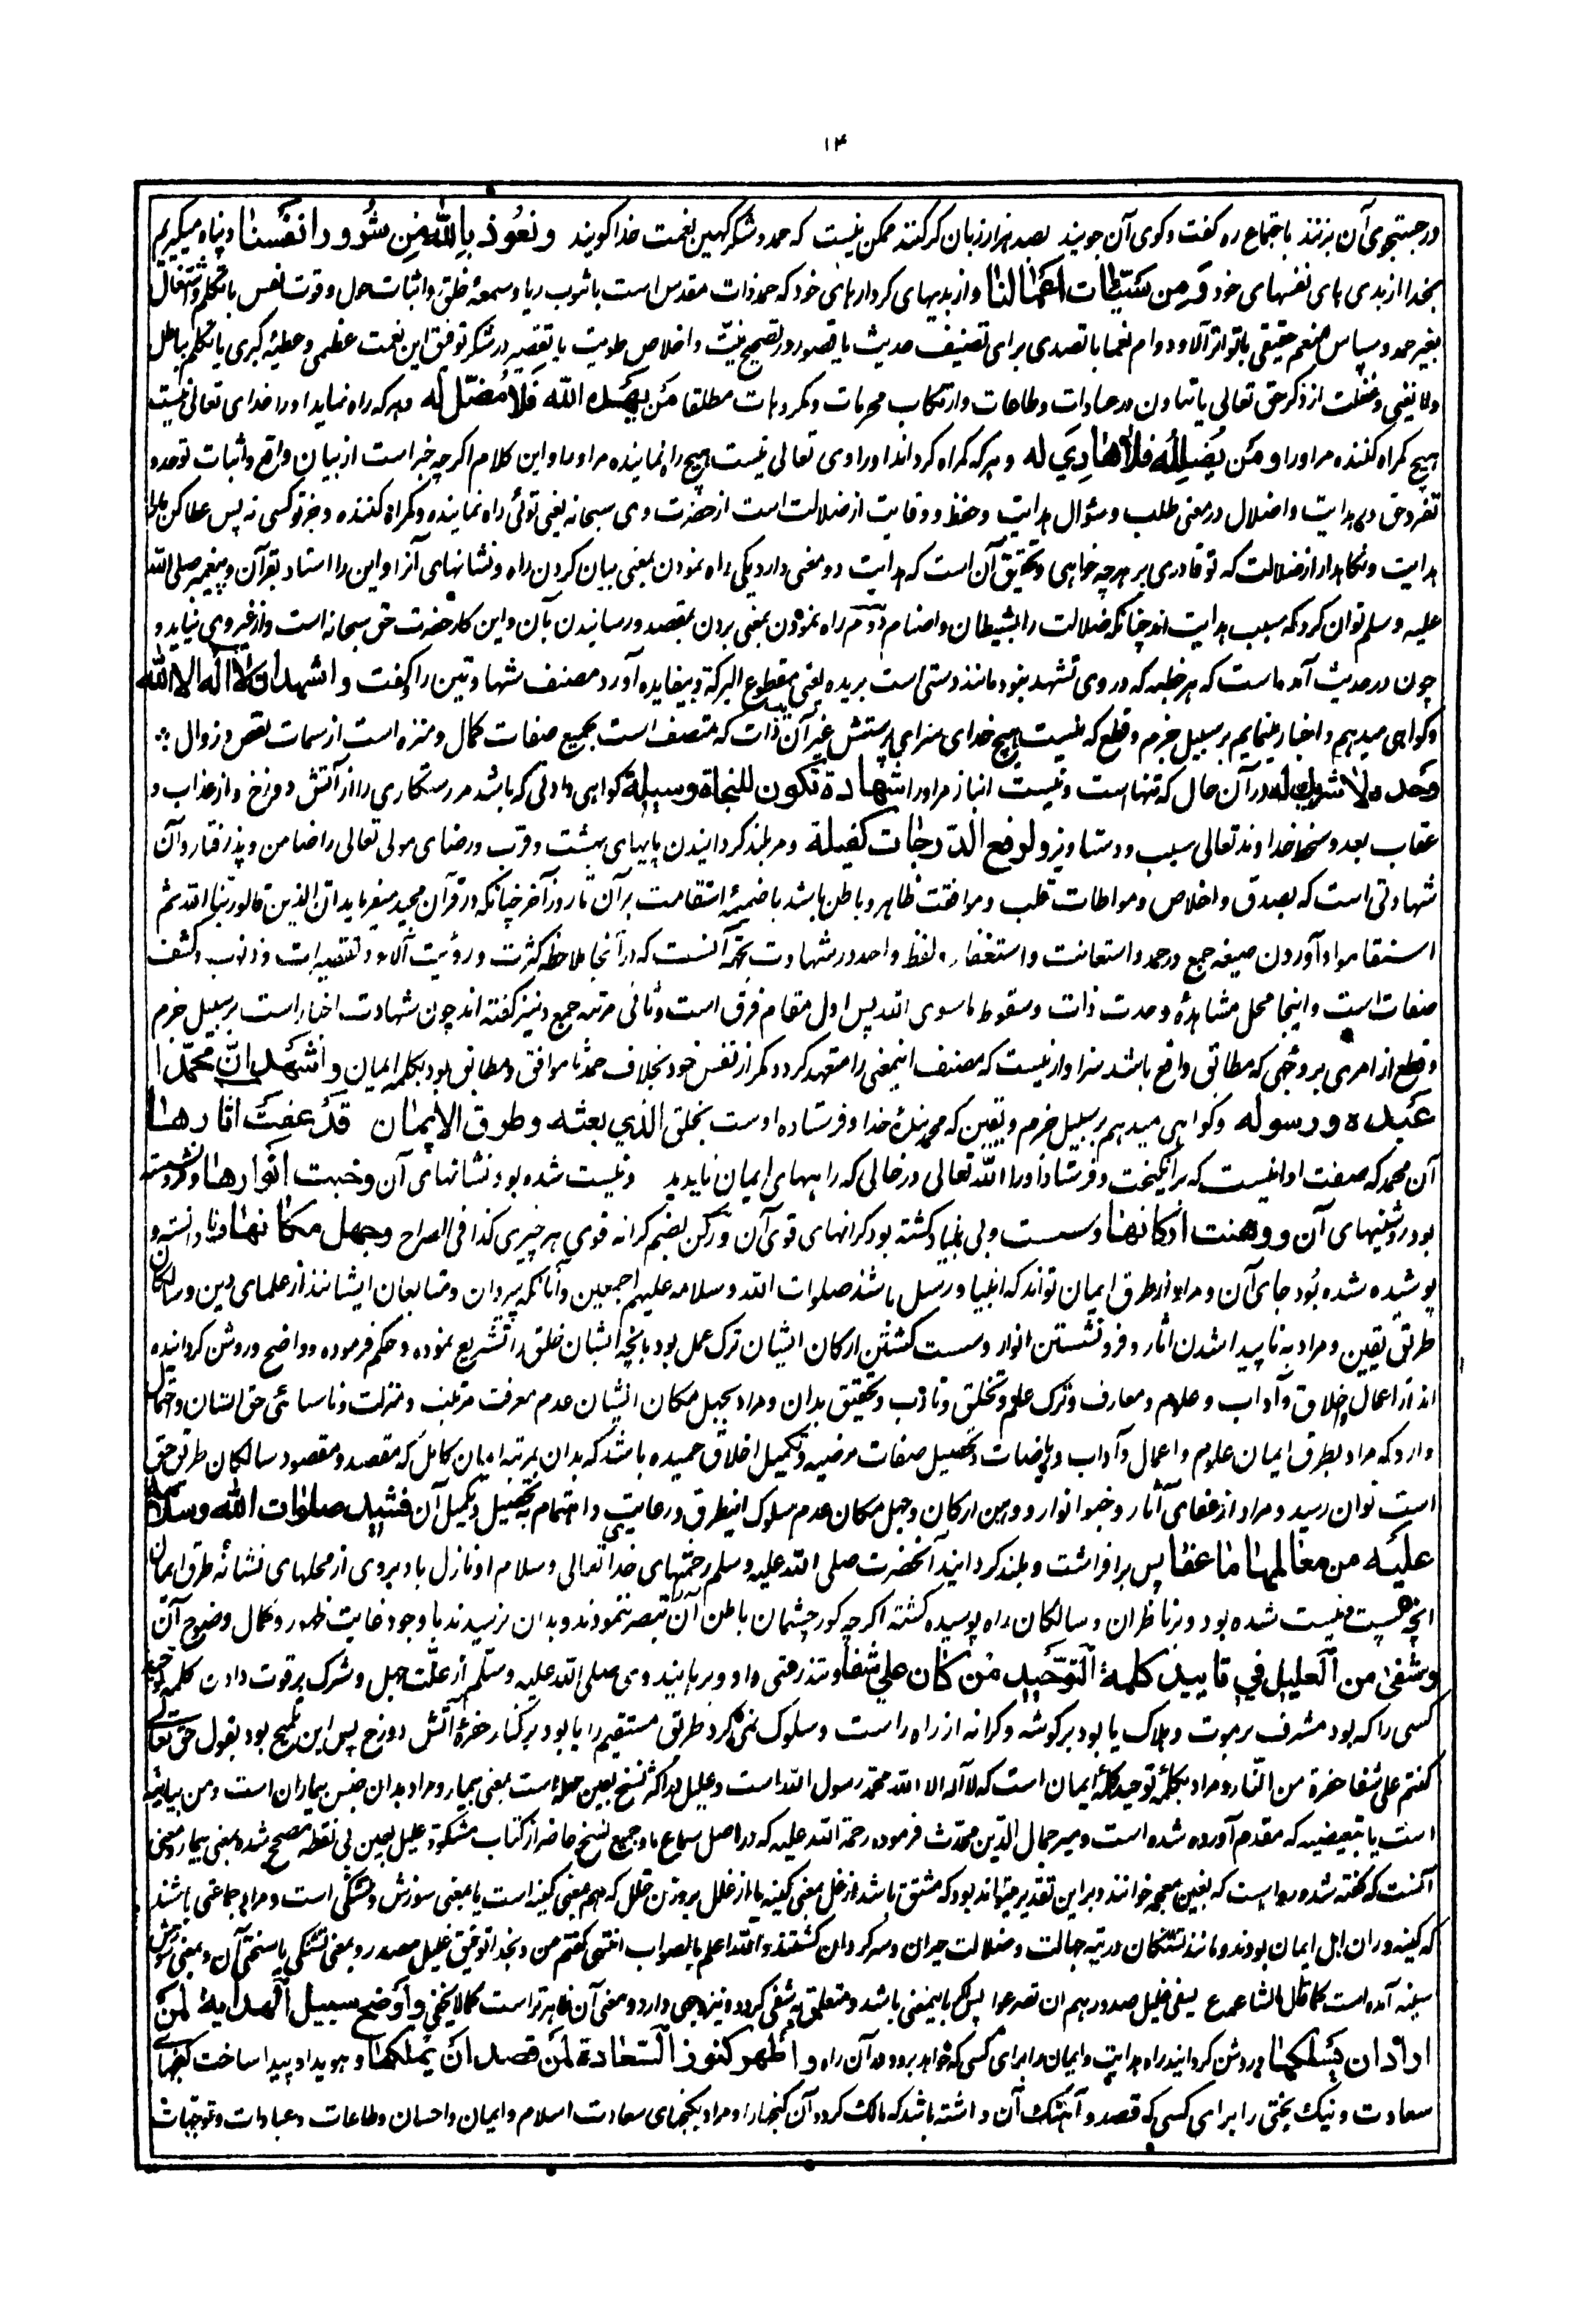 ۱۴
در جستجوی آن برنزند باجتماع ره گفت وگوی آن جویند بصد هزار زبان گر کنند ممکن نیست که حمد و شکر کهین نعمت خدا گویند ونعوذ بالله من شرور انفسنا و پناه میگیریم
بخدا از بدی های نفسهای خود ومن سیئات اعمالنا و از بدیهای کردارهای خود که حمد ذات مقدس است باشوب ریا و سمعۀ خلق و اثبات حول و قوت نفس یا تکلم و اشتغال
بغیر حمد و سپاس منعم حقیقی باتواتر آلا و دوام نعما یا تصدی برای تصنیف حدیث یا قصور در تصحیح نیت و اخلاص طویت یا تقصیر در شکر توفیق این نعمت عظمی و عطیۀ کبری یا تکلم بباطل
ولا یعنی و غفلت از ذکر حق تعالی یا تهاون در عبادات و طاعات و ارتکاب محرمات و مکروهات مطلقا من یهده الله فلا مضل له و هر که راه نماید او را خدای تعالی نیست
هیچ گمراه کننده مر او را ومن یضلله فلا هادی له و هر که گمراه گرداند او را وی تعالی نیست هیچ راه نماینده مر او را و این کلام اگرچه خبر است از بیان واقع و اثبات توحد و
تفرد حق در هدایت و اضلال در معنی طلب و سؤال هدایت و حفظ و وقایت از ضلالت است از حضرت وی سبحانه یعنی توئی راه نماینده و گمراه کننده و جز تو کسی نه پس عطا کن ما را
هدایت و نگاهدار از ضلالت که تو قادری بر هرچه خواهی و تحقیق آن است که هدایت دو معنی دارد یکی راه نمودن بمعنی بیان کردن راه و نشانهای آنرا و این را اسناد بقرآن و پیغمبر صلی الله
علیه وسلم توان کرد که سبب هدایت اند چنانکه ضلالت را بشیطان و اصنام دوم راه نمودن بمعنی بردن بمقصد و رسانیدن بآن و این کار حضرت حق سبحانه است و از غیر وی نیاید و
چون در حدیث آمده است که هر خطبه که در وی تشهد نبود مانند دستی است بریده یعنی مقطوع البرکة و بیفایده آورد مصنف شهادتین را گفت واشهد ان لا اله الا الله
و گواهی میدهم و اخبار مینمایم بر سبیل جزم و قطع که نیست هیچ خدای سزای پرستش غیر آن ذات که متصف است بجمیع صفات کمال و منزه است از سمات نقص و زوال
وحده لا شریک له در آن حال که تنها است و نیست انباز مر او را شهادة تکون للنجاة وسیلة گواهی دادنی که باشد مر رستگاری را از آتش دوزخ و از عذاب و
عقاب بعد و سخط خداوند تعالی سبب و دستاویز ولرفع الدرجات کفیلة و مر بلند گردانیدن پایهای بهشت و قرب و رضای مولی تعالی را ضامن و پذیرفتار و آن
شهادتی است که بصدق و اخلاص و مواطات قلب و موافقت ظاهر و باطن باشد با ضمیمۀ استقامت بر آن تا روز آخر چنانکه در قرآن مجید میفرماید ان الذین قالوا ربنا الله ثم
استقاموا و آوردن صیغه جمع در حمد و استعانت و استغفار و لفظ واحد در شهادت بجهة آنست که در آنجا ملاحظه کثرت و رؤیت آلاء و تقصیرات و ذنوب و کشف
صفات است و اینجا محل مشاهدۀ وحدت ذات و سقوط ماسوی الله پس اول مقام فرق است و ثانی مرتبه جمع و نیز گفته اند چون شهادت اخبار است بر سبیل جزم
و قطع از امری بر وجهی که مطابق واقع باشد سزاوار نیست که مصنف اینمعنی را متعهد گردد مگر از نفس خود بخلاف حمد تا موافق و مطابق بود بکلمه ایمان واشهد ان محمدا
عبده ورسوله و گواهی میدهم بر سبیل جزم و یقین که محمد بندۀ خدا و فرستاده اوست بخلق الذی بعثه وطرق الایمان قد عفت اثارها
آن محمد که صفت او اینست که برانگیخت و فرستاد او را الله تعالی در حالی که راههای ایمان ناپدید و نیست شده بود نشانهای آن وخبت انوارها و فرونشسته
بود روشنیهای آن ووهنت ارکانها و سست و بی بنیاد گشته بود کرانهای قوی آن و رکن بضم کرانه قوی هر چیزی کذا فی الصراح وجهل مکانها و نادانسته و
پوشیده شده بود جای آن و مراد از طرق ایمان تواند که انبیا و رسل باشند صلوات الله وسلامه علیهم اجمعین و آنانکه پیروان و متابعان ایشانند از علمای دین و سالکان
طریق یقین و مراد به ناپیدا شدن آثار و فرونشستن انوار و سست گشتن ارکان ایشان ترک عمل بود بانچه ایشان خلق را تشریع نموده و حکم فرموده و واضح و روشن گردانیده
اند از اعمال و اخلاق و آداب و علوم و معارف و ترک علم و تخلق و تادب و تحقیق بدان و مراد بجهل مکان ایشان عدم معرفت مرتبت و منزلت و ناشناسائی حق ایشان و احتمال
دارد که مراد بطرق ایمان علوم و اعمال و آداب و ریاضات و تحصیل صفات مرضیه و تکمیل اخلاق حمیده باشد که بدان بمرتبه ایمان کامل که مقصد و مقصود سالکان طریق حق
است توان رسید و مراد از عفای آثار و خبو انوار و وهن ارکان و جهل مکان عدم سلوک اینطرق و رعایت و اهتمام به تحصیل و تکمیل آن فشید صلوات الله وسلامه
علیه من معالمها ما عفا پس برافراشت و بلند گردانید آنحضرت صلی الله علیه وسلم رحمتهای خدا تعالی و سلام او نازل باد بر وی از محلهای نشانۀ طرق ایمان
آنچه نیست شده بود و بر ناظران و سالکان راه پوسیده گشته اگرچه کورچشمان باطن آن تبصر ننمودند و بدان نرسیدند با وجود غایت ظهور و کمال وضوح آن
وشفی من العلیل فی تایید کلمة التوحید من کان علی شفا و تندرستی داد و برهانید وی صلی الله علیه وسلم از علت جهل و شرک بقوت دادن کلمه توحید
کسی را که بود مشرف بر موت و هلاک یا بود بر گوشه و کرانه از راه راست و سلوک نمی کرد طریق مستقیم را یا بود بر کنار حفرۀ آتش دوزخ پس این تلمیح بود بقول حق تعالی
کنتم علی شفا حفرة من النار و مراد بکلمۀ توحید کلمۀ ایمان است که لا اله الا الله محمد رسول الله است و علیل در اکثر نسخ بعین مهمله است بمعنی بیمار و مراد بدان جنس بیماران است و من بیانیه
است یا تبعیضیه که مقدم آورده شده است و میر جمال الدین محدث فرموده رحمة الله علیه که در اصل سماع ما و جمیع نسخ حاضره از کتاب مشکوة علیل بعین بی نقطه مصحح شده بمعنی بیمار و معنی
آنست که گفته شده رواست که بغین معجمه خوانند و بر این تقدیر میتواند بود که مشتق باشد از غل بمعنی کینه یا از غلل بر وزن ظلل که هم بمعنی کینه است یا بمعنی سوزش و تشنگی است و مراد جماعتی باشند
که کینه وران اهل ایمان بودند و مانند تشنگان در تیه جهالت و ضلالت حیران و سرگردان گشتند و الله اعلم بالصواب انتهی گفتم من و بخدا توفیق غلیل مصدر و بمعنی تشنگی یا سختی آن و بمعنی سوزش
سینه آمده است کما قال الشاعر ع یشفی غلیل صدورهم ان تصرعوا پس باینمعنی باشد و متعلق به شفی کرده نیز وجهی دارد و معنی آن ظاهرتر است کما لا یخفی واوضح سبیل الهدایة لمن
اراد ان یسلکها و روشن گردانید راه هدایت و ایمان را برای کسی که خواهد برود در آن راه واظهر کنوز السعادة لمن قصد ان یملکها و هویدا و پیدا ساخت گنجهای
سعادت و نیک بختی را برای کسی که قصد و آهنگ آن داشته باشد که مالک گردد آن گنجها را و مراد بگنجهای سعادت اسلام و ایمان و احسان و طاعات و عبادات و توجهات